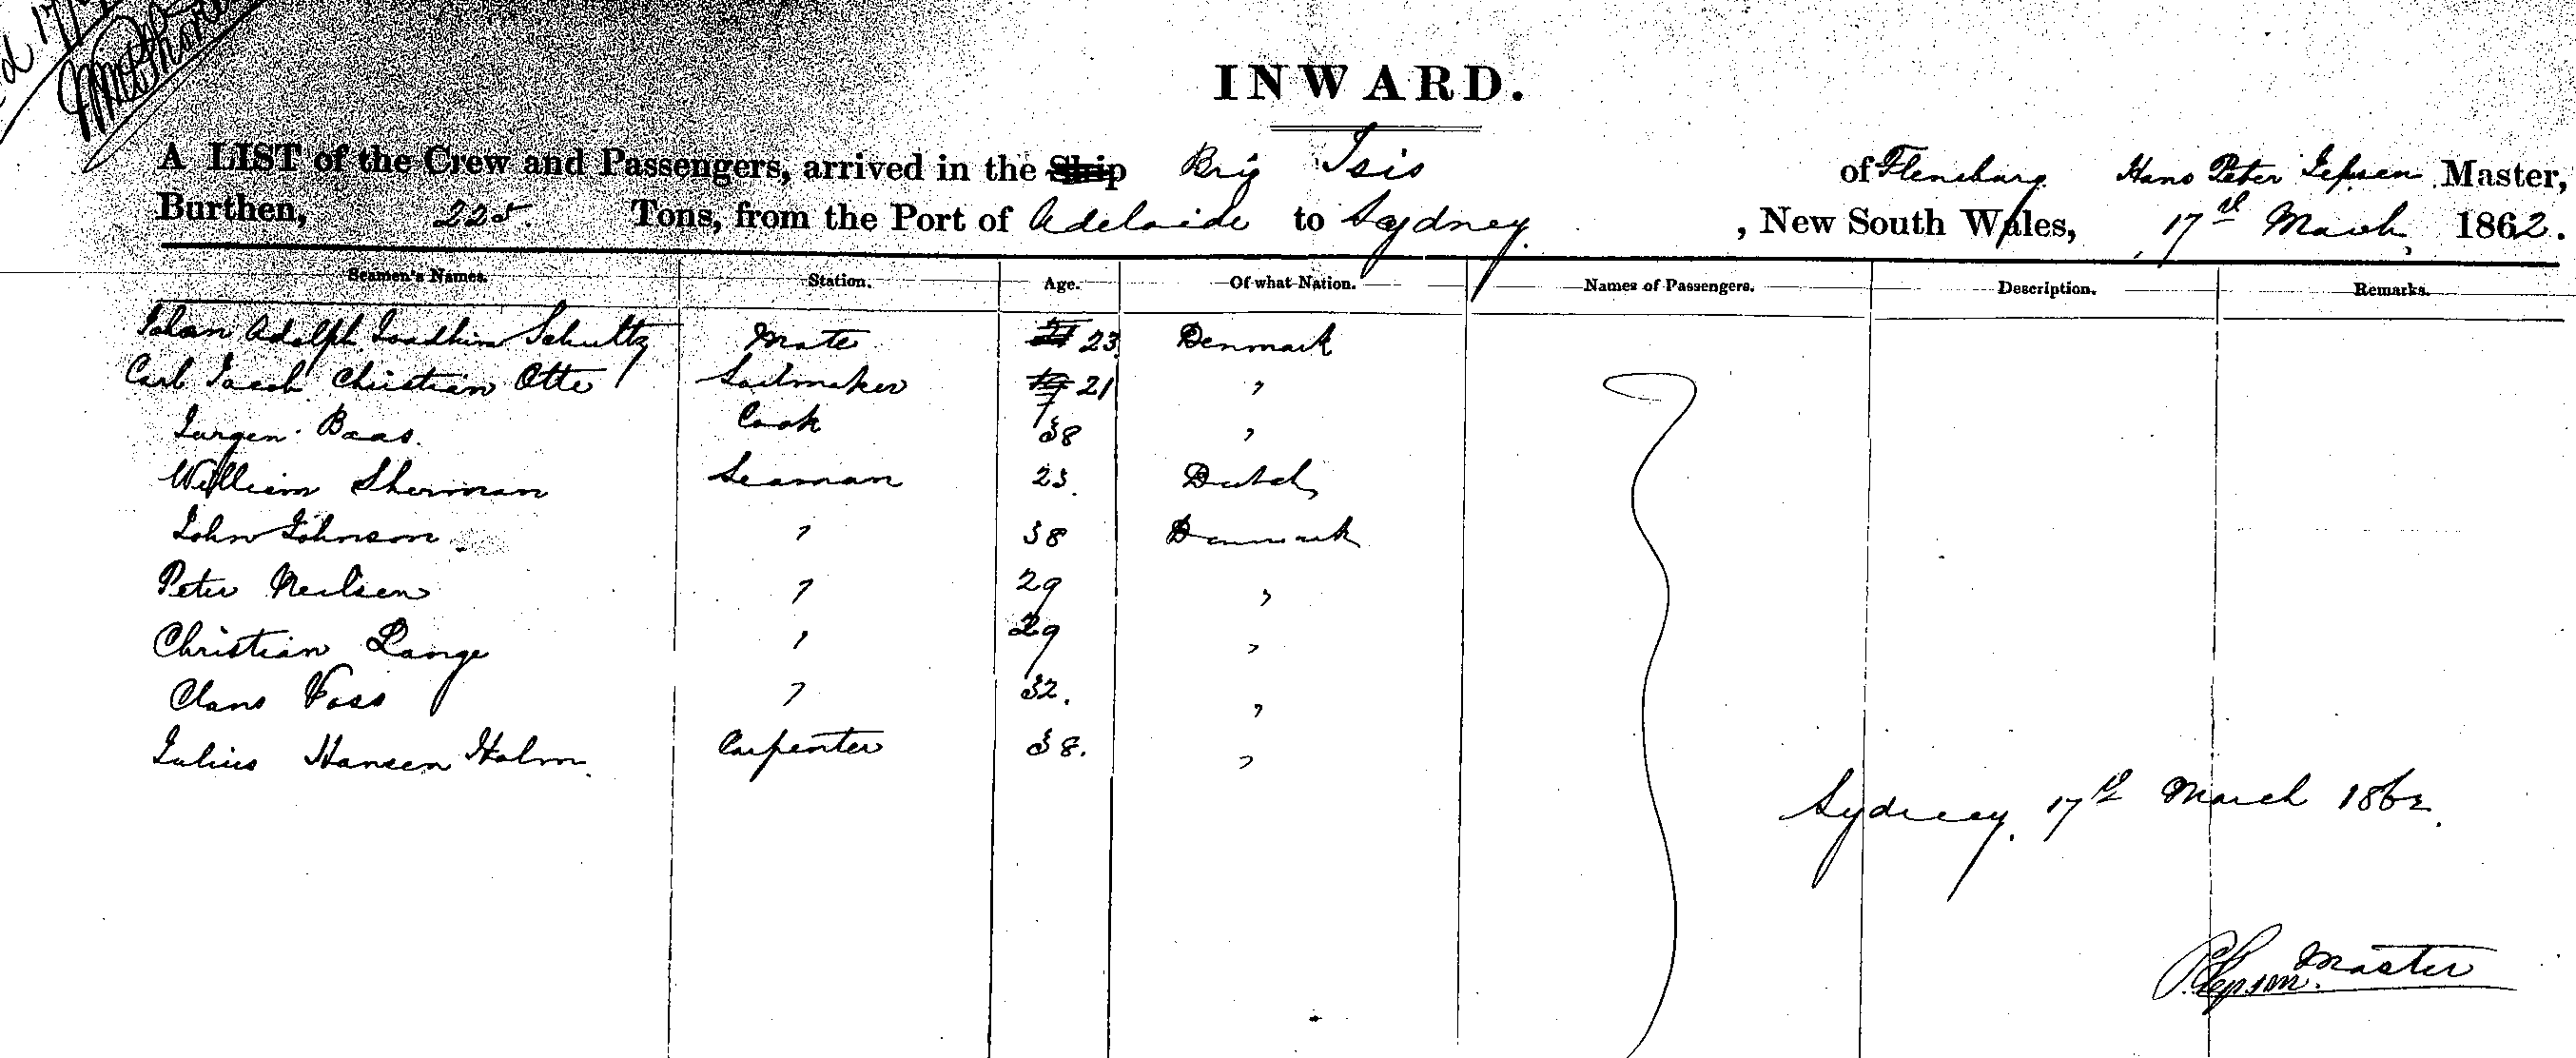 INWARD.
A LIST of the Crew and Passengers, arrived in the Ship Brig Isis of Flensburg Hans Peter Jepsen Master,
Burthen, 225 Tons, from the Port of Adelaide to Sydney, New South Wales, 17th March 1862.
Seamen's Names. Station. Age. Of what Nation. Names of Passengers. Description. Remarks.
Johan Adolph Joachim Schultz Mate 23 Denmark
Carl Jacob Christian Otte Sailmaker 21 "
Jurgen Baas. Cook 38 "
William Sherman Seaman 23. Dutch
John Johnson " 38 Denmark
Peter Neilsen " 29 "
Christian Lange " 29 "
Claus Voss " 32. "
Julius Hansen Holm. Carpenter 38. "
Sydney. 17th March 1862.
Jepsen. Master